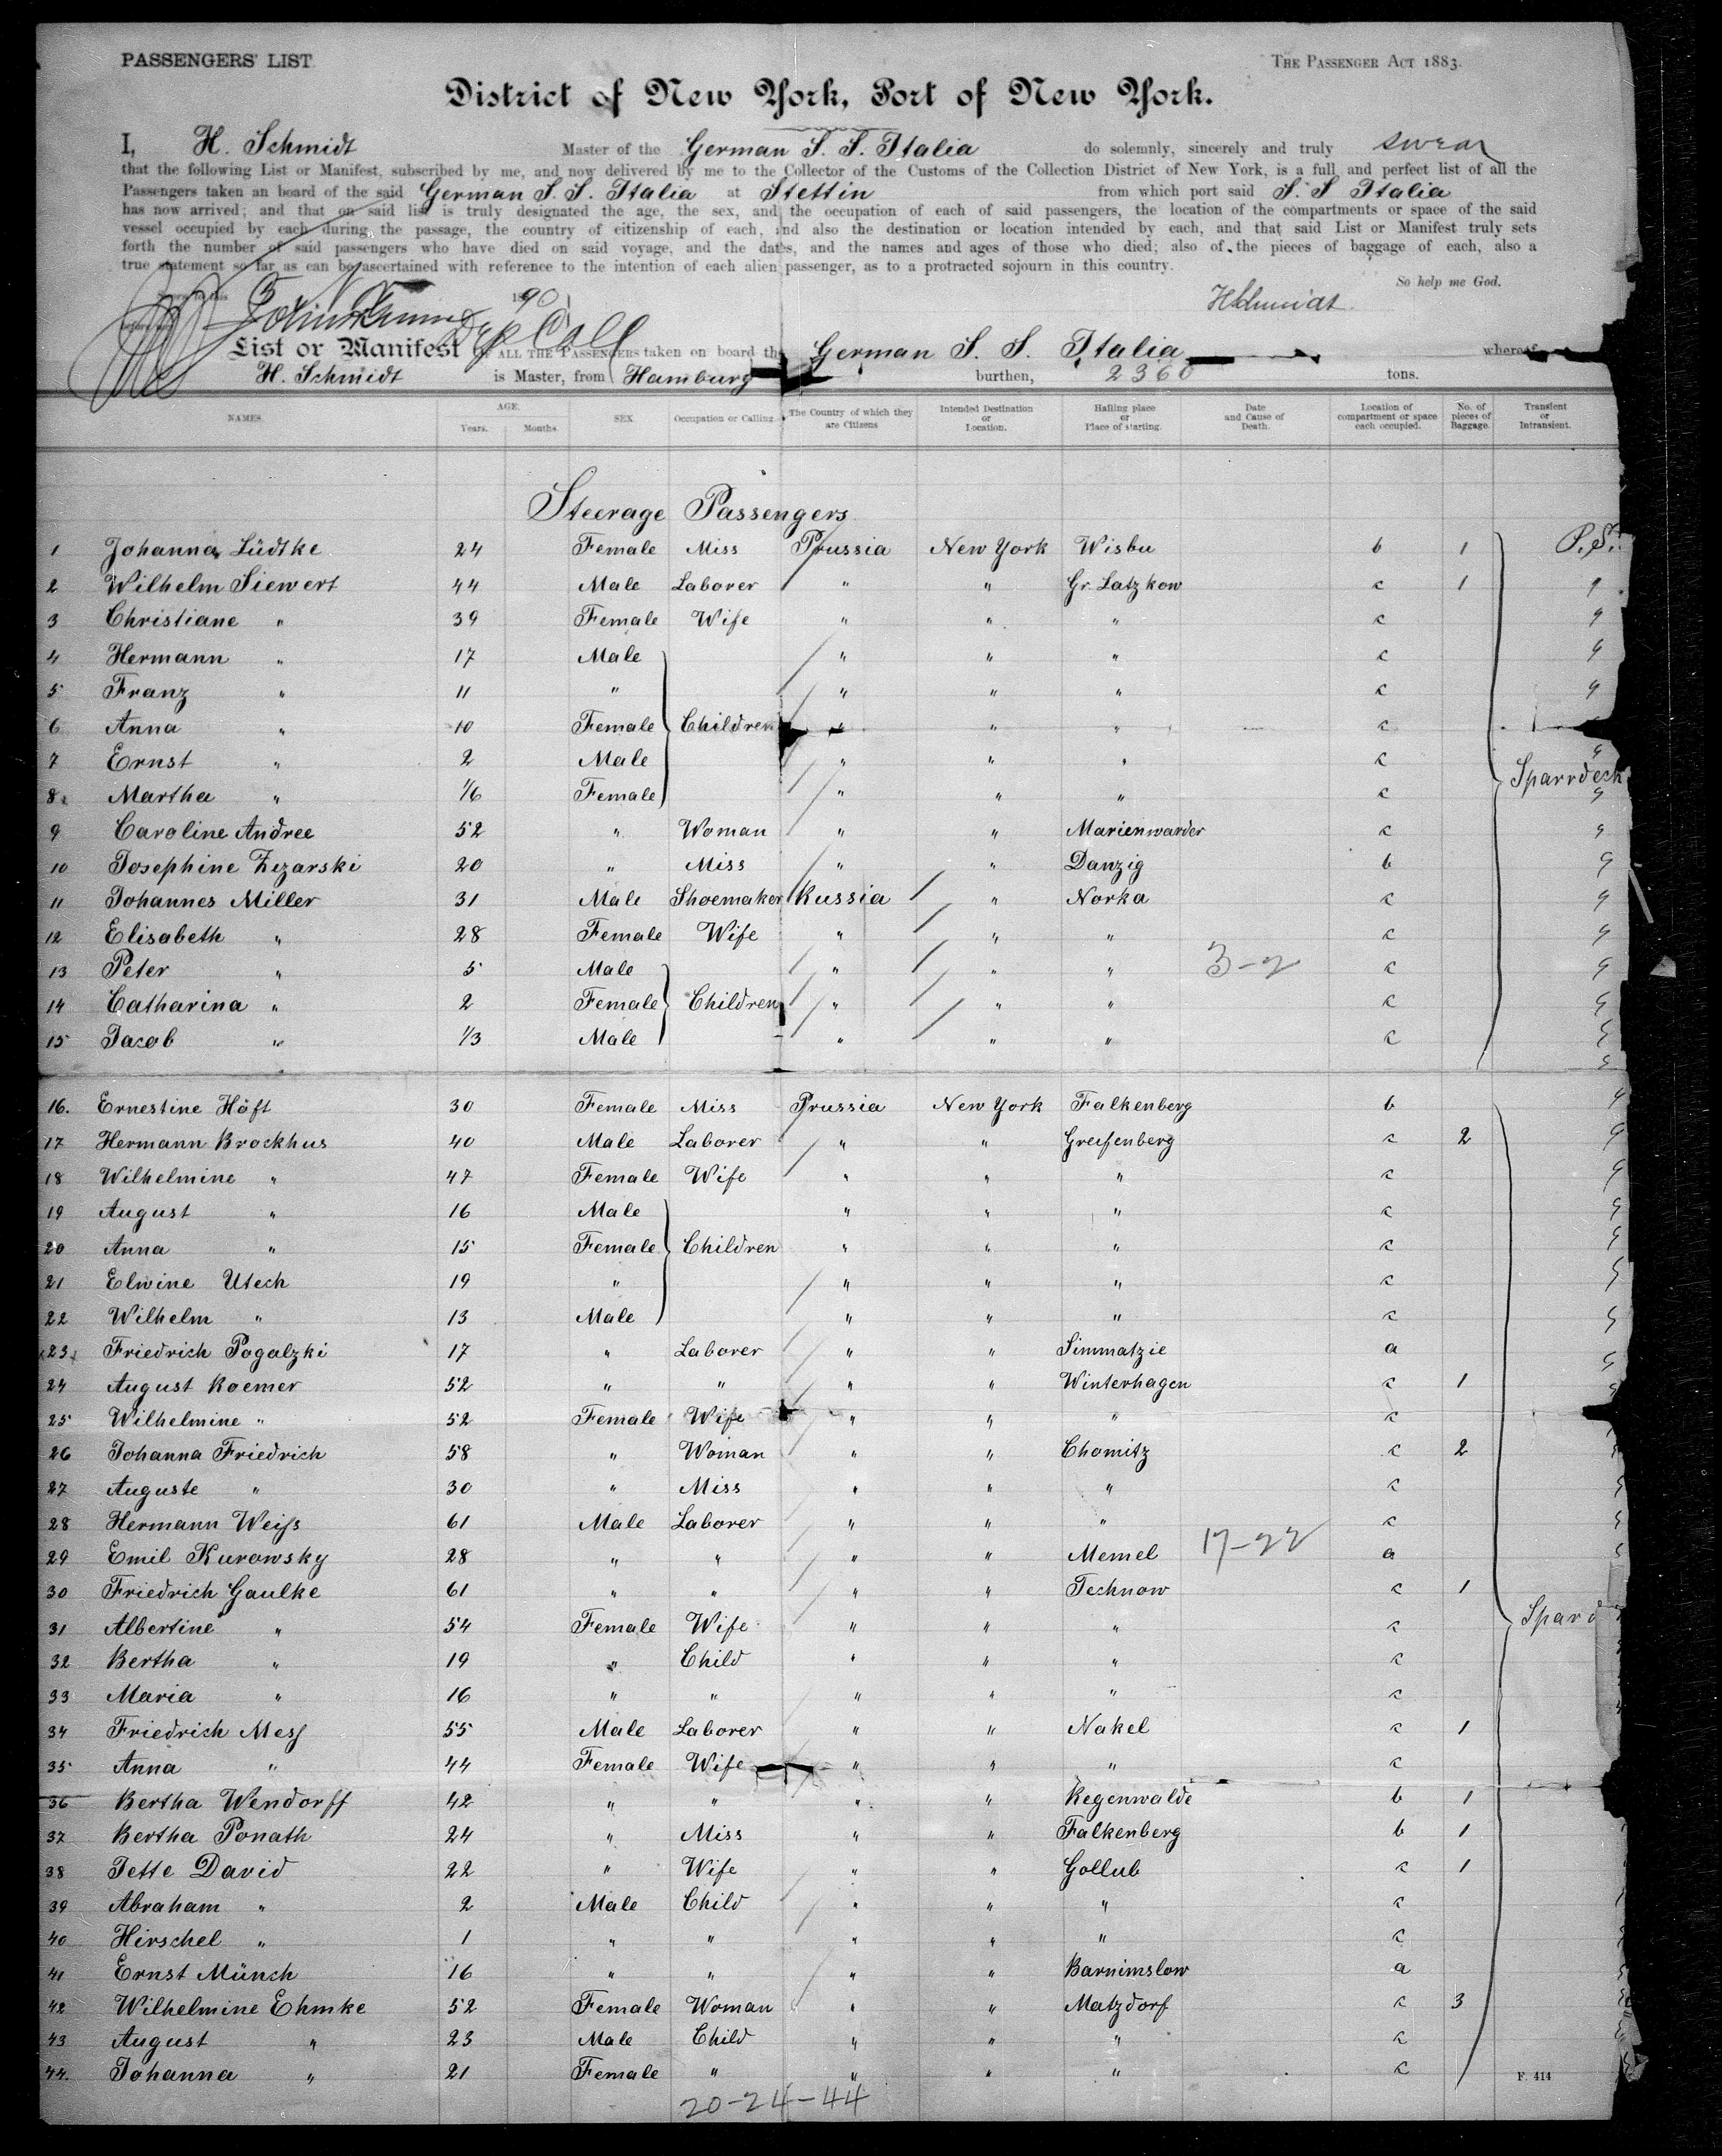 PASSENGERS' LIST.
THE PASSENGER ACT 1883.
District of New York, Port of New York.
I, H. Schmidt Master of the German S. S. Italia do solemnly, sincerely and truly swear
that the following List or Manifest, subscribed by me, and now delivered by me to the Collector of the Customs of the Collection District of New York, is a full and perfect list of all the
Passengers taken an board of the said German S. S. Italia at Stettin from which port said S. S Italia
has now arrived; and that on said list is truly designated the age, the sex, and the occupation of each of said passengers, the location of the compartments or space of the said
vessel occupied by each during the passage, the country of citizenship of each, and also the destination or location intended by each, and that said List or Manifest truly sets
forth the number of said passengers who have died on said voyage, and the dates, and the names and ages of those who died; also of the pieces of baggage of each, also a
true statement so far as can be ascertained with reference to the intention of each alien passenger, as to a protracted sojourn in this country.
So help me God.
1890
HSchmidt
List or Manifest OF ALL THE PASSENGERS taken on board the German S. S. Italia whereof
H. Schmidt is Master, from Hamburg burthen, 2360 tons.
NAMES. AGE. Years. Months. SEX. Occupation or Calling. The Country of which they are Citizens Intended Destination or Location. Hailing place or Place of starting. Date and Cause of Death. Location of compartment or space each occupied. No. of pieces of Baggage. Transient or Intransient.
Steerage Passengers
1 Johanna Lüdtke 24 Female Miss Prussia New York Wisbu b 1 P.S.
2 Wilhelm Siewert 44 Male Laborer " " Gr. Latzkow c 1 "
3 Christiane " 39 Female Wife " " " c "
4 Hermann " 17 Male " " " c "
5 Franz " 11 " " " " c "
6 Anna " 10 Female Children " " " c
7 Ernst " 2 Male " " " c "
Sparrdeck
8 Martha " 1/6 Female " " " c "
9 Caroline Andree 52 " Woman " " Marienwarder c "
10 Josephine Zezarski 20 " Miss " " Danzig b "
11 Johannes Miller 31 Male Shoemaker Russia " Norka c "
12 Elisabeth " 28 Female Wife " " " c "
13 Peter " 5 Male " " " 3-2 c "
14 Catharina " 2 Female Children " " " c "
15 Jacob " 1/3 Male " " " c "
16. Ernestine Höft 30 Female Miss Prussia New York Falkenberg b "
17 Hermann Brockhus 40 Male Laborer " " Greifenberg c 2 "
18 Wilhelmine " 47 Female Wife " " " c "
19 August " 16 Male " " " c "
20 Anna " 15 Female Children " " " c "
21 Elwine Utech 19 " " " " c "
22 Wilhelm " 13 Male " " " c "
23 Friedrich Pogalzki 17 " Laborer " " Simmatzie a "
24 August Roemer 52 " " " " Winterhagen c 1 "
25 Wilhelmine " 52 Female Wife " " " c
26 Johanna Friedrich 58 " Woman " " Chomitz c 2 "
27 Auguste " 30 " Miss " " " c "
28 Hermann Weiss 61 Male Laborer " " " c "
29 Emil Kurowsky 28 " " " " Memel 17-22 a "
30 Friedrich Gaulke 61 " " " " Technow c 1
31 Albertine " 54 Female Wife " " " c Spard
32 Bertha " 19 " Child " " " c
33 Maria " 16 " " " " " c
34 Friedrich Mess 55 Male Laborer " " Nakel c 1
35 Anna " 44 Female Wife " " " c
36 Bertha Wendorff 42 " " " " Regenwalde b 1
37 Bertha Ponath 24 " Miss " " Falkenberg b 1
38 Jette David 22 " Wife " " Gollub c 1
39 Abraham " 2 Male Child " " " c
40 Hirschel " 1 " " " " " c
41 Ernst Münch 16 " " " " Barnimslow a
42 Wilhelmine Ehmke 52 Female Woman " " Matzdorf c 3
43 August " 23 Male Child " " " c
44. Johanna " 21 Female " " " " c
F. 414
20-24-44